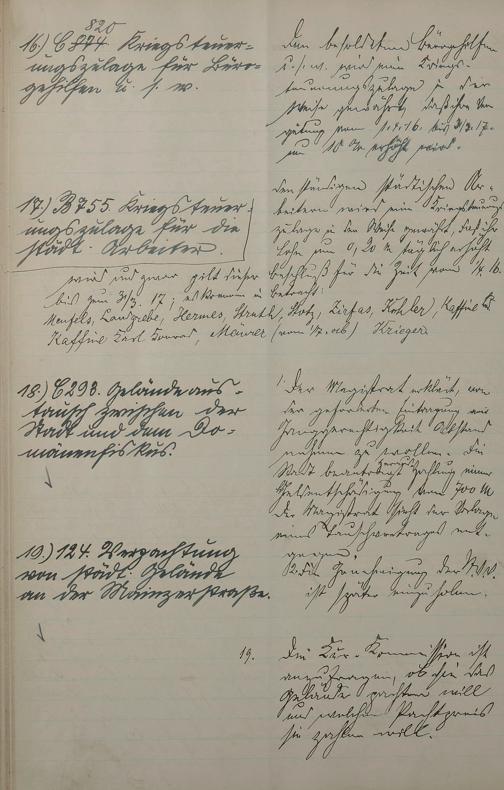 820
16.) C 874 Kriegsteuer-
ungszulage für Büro-
gehilfen u. s. w.
Den besoldeten Bürogehilfen
u. s. w. wird eine Kriegs-
teuerungszulage in der
Weise gewährt, daß ihre Ver-
gütung vom 1.4.16. bis 31/3.17.
um 10 % erhöht wird.
17.) B 755. Kriegsteuer-
ungszulage für die
städt. Arbeiter.
Den ständigen städtischen Ar-
beitern wird eine Kriegsteuerungs
zulage in der Weise gewährt, daß ihr
Lohn um 0,20 M täglich erhöht
wird und zwar gilt dieser Beschluß für die Zeit vom 1/4.16.
bis zum 31/3.17; es kommen in Betracht:
Landgrebe, Hermes, Struth, Stotz, Zirfas, Köhler,
Karl Konrad, Maurer Krieger
18.) C 293. Geländeaus-
tausch zwischen der
Stadt und dem Do-
mänenfiskus.
1. Der Magistrat erklärt, von
der geforderten Eintragung ein
Abstand
nehmen zu wollen. Die
Stadt beantragt Zahlung einer
Geldentschädigung von 700 M
Der Magistrat sieht der Vorlage
eines Tauschvertrages ent-
gegen.
2. Die Genehmigung der St. V. V.
ist später einzuholen.
19.) 124. Verpachtung
von städt. Gelände
an der Mainzerstraße.
19. Die Kur-Kommission ist
anzufragen, ob sie das
Gelände pachten will
und welchen Pachtpreis
sie zahlen will.